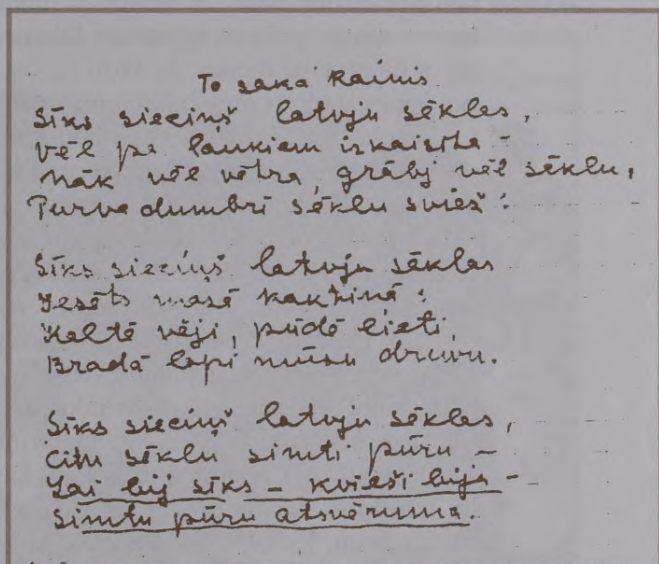 To saka Rainis
Sīks sieciņš latvju sēklas,
vēl pa laukiem izkaisīta -
Nāk vēl vētra, grābj vēl sēklu,
Purva dumbrī sēklu sviež:
Sīks sieciņš latvju sēklas
Iesēts masē kaktiņā:
Kaltē vēji, pūdē lieti,
Bradā lopi mūsu druvu.
Sīks sieciņš latvju sēklas,
Citu sēklu simti pūru -
Lai bij sīks - kvieši bija -
Simtu pūru atsvēruma.